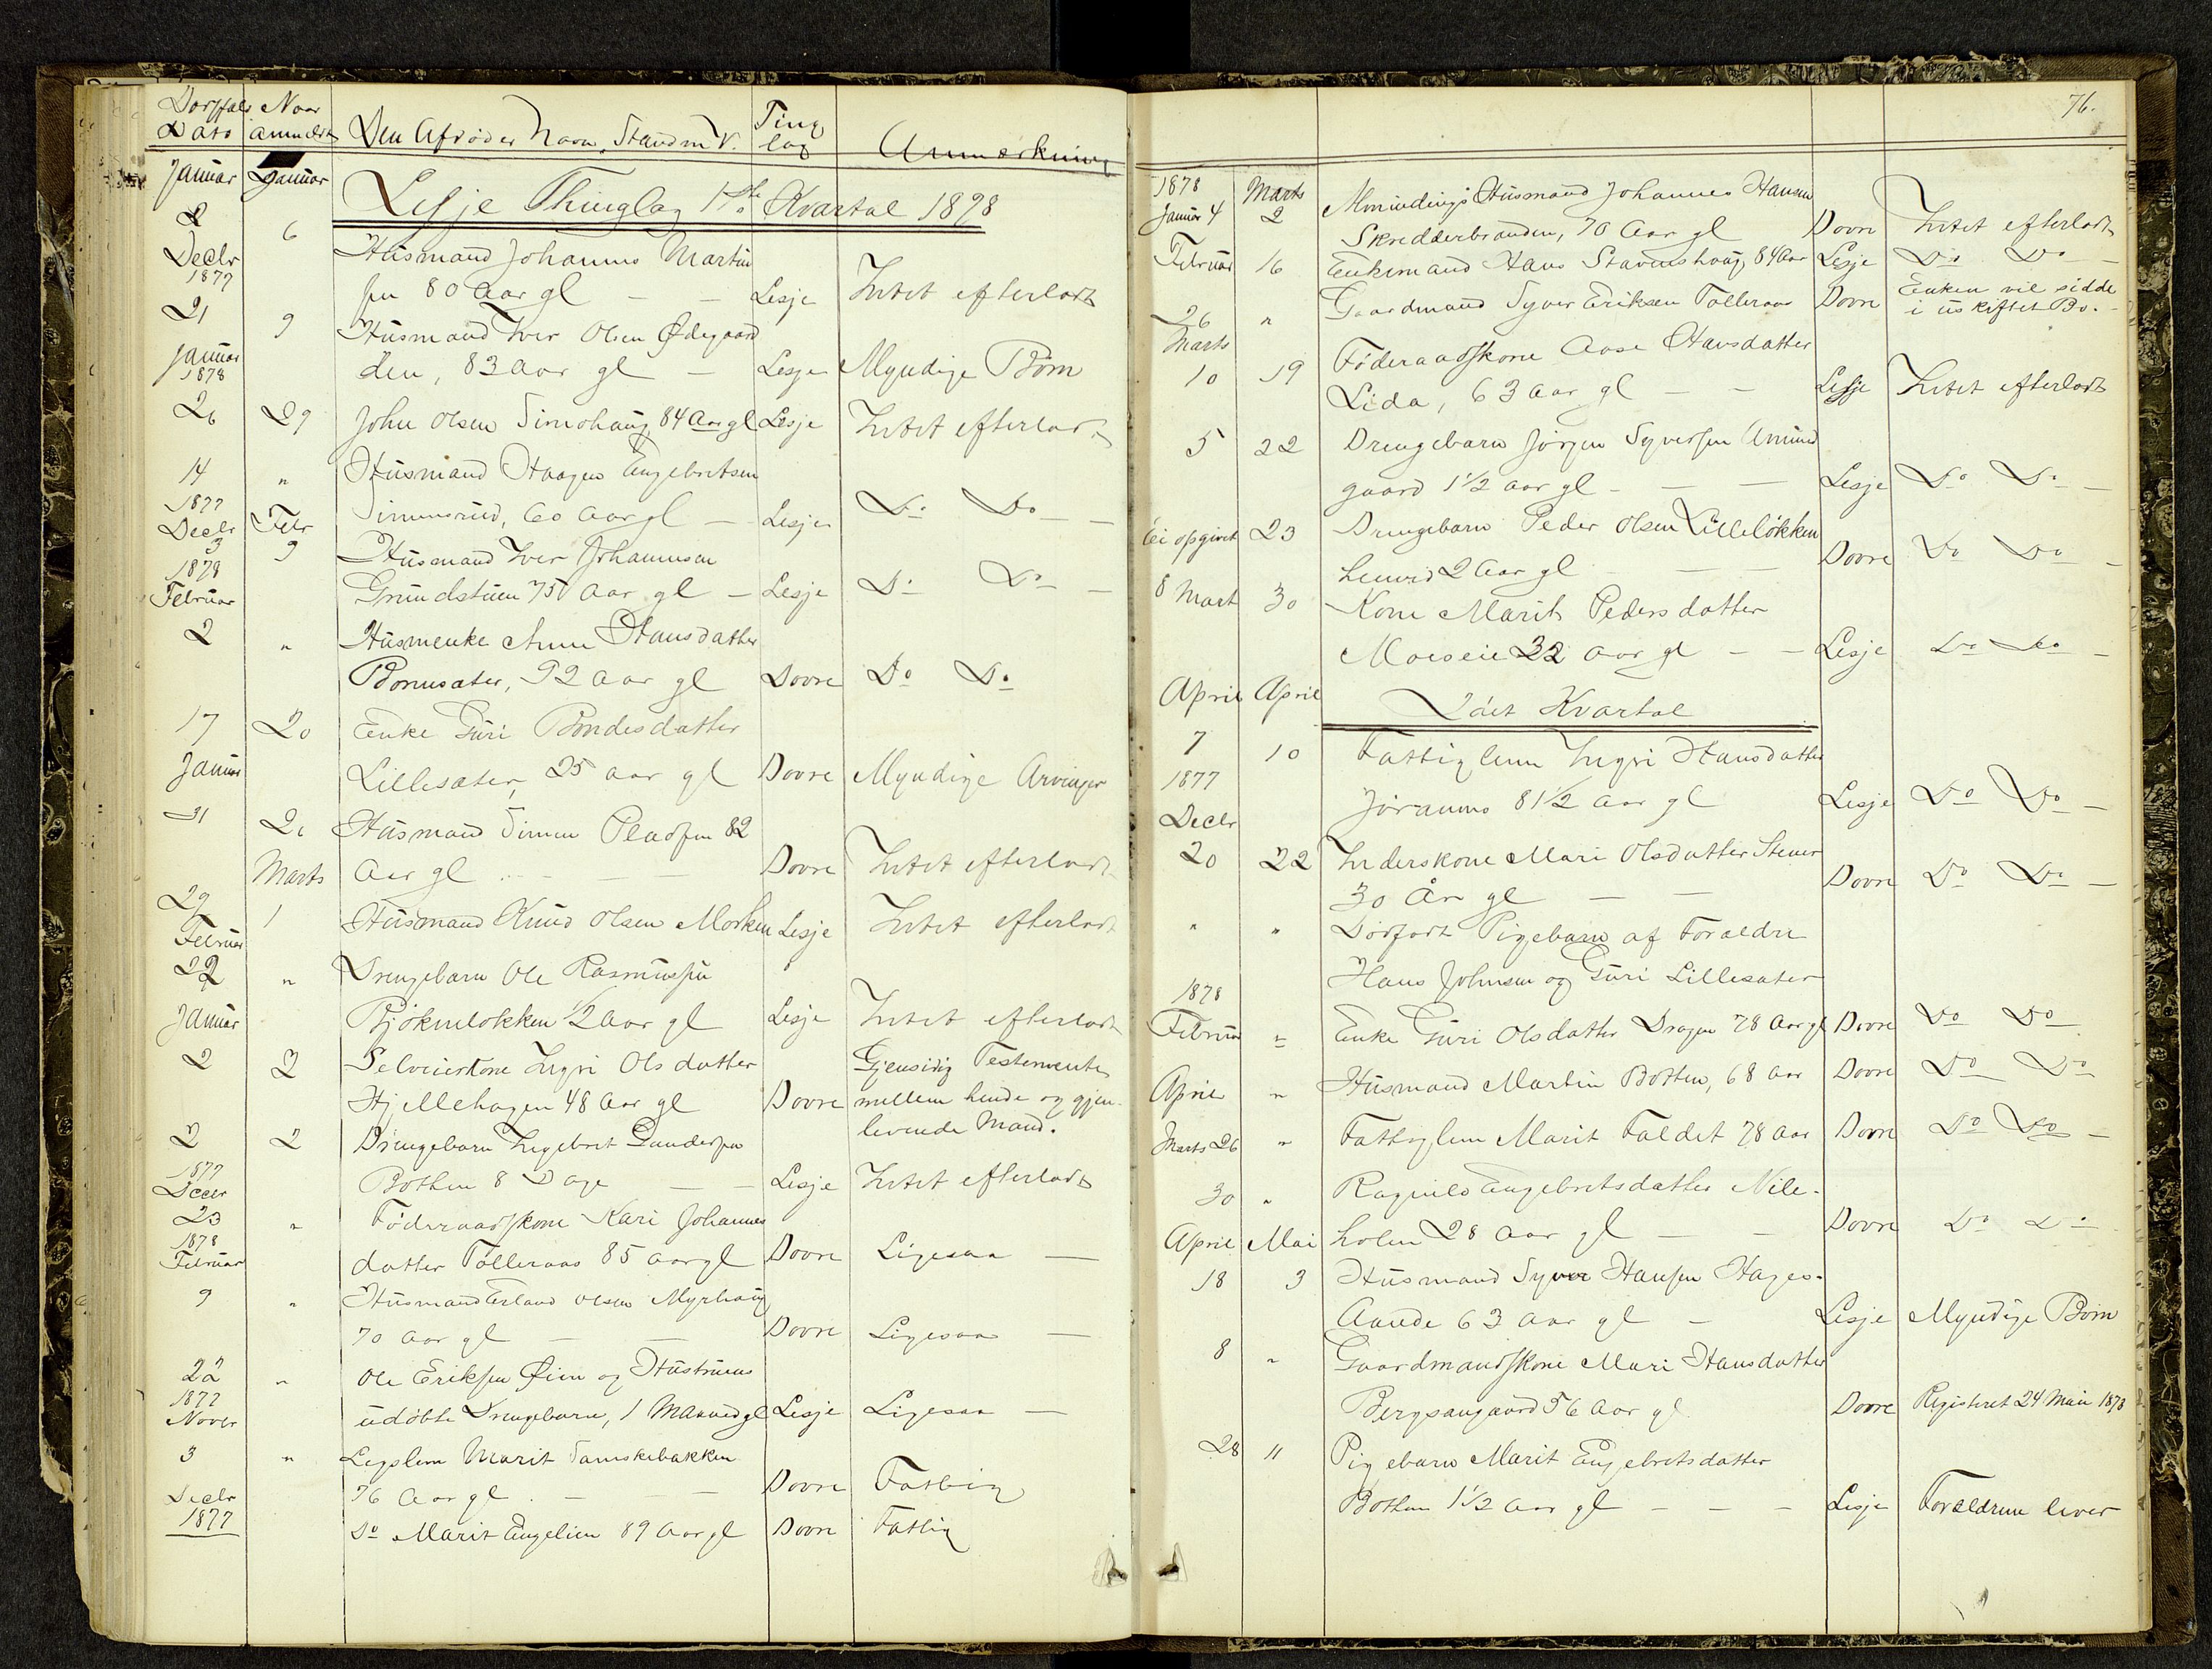 Dødsfalds Dato | Naar anmeldt | Den Afdødes Navn, Stand m V. | Ting lag | Anmærkning
Januar | Januar | Lesje Thinglag 1ste Kvartal 1878
2 | 6
Decbr 1877 | Husmand Johannes Martin
sen 80 Aar gl – – | Lesje | Intet efterladt
21 | 9 | Husmand Iver Olsen Ødegaard
Januar 1878 | den, 83 Aar gl – | Lesje | Myndige Børn
26 | 29 | John Olsen Simohaug 84 Aar gl | Lesje | Intet efterladt
14 | " | Husmand Haagen Engebretsen
1877 | Simensrud, 60 Aar gl – | Lesje | Do Do –
Decbr 3 | Febr 9 | Husmand Iver Johannesen
1878 Februar | Grundstuen 75 Aar gl – | Lesje | Do Do –
2 | " | Husmenke Anne Hansdatter
Bonusæter, 92 Aar gl | Dovre | Do Do
17 | 20 | Enke Guri Pondesdatter
Januar | Lillesæter, 25 Aar gl | Dovre | Myndige Arvinger
31 | 26 | Husmand Simen Pladsen 82
Marts | Aar gl – – – | Dovre | Intet efterladt
29 | 1 | Husmand Knud Olsen Morken | Lesje | Intet efterladt
Februar
22 | " | Drengebarn Ole Rasmussen
Januar | Bjøkneløkken 1/2 Aar gl | Lesje | Intet efterladt
2 | 2 | Selveierkone Ingri Olsdatter | Gjensidig Testemente
Hjellehagen 48 Aar gl | Dovre | mellem hende og gjen-
levende Mand.
2 | 2 | Drengebarn Ingebret Gundersen
1877 Decbr | Bothen 8 Dage – – | Lesje | Intet efterladt
23 | " | Føderaadskone Kari Johannes
1878 Februar | datter Tolleraas 85 Aar gl | Dovre | Ligesaa –
9 | " | Husmand Erland Olsen Myrhaug
70 Aar gl – – | Dovre | Ligesaa –
22 | " | Ole Eriksen Øien og Hustrues
1877 Novbr | udøbte Drengebarn, 1 Maaned gl | Lesje | Ligesaa –
3 | " | Legslem Marit Tamskebakken
Decbr | 76 Aar gl – – – | Dovre | Fattig
1877 | Do Marit Engelien 89 Aar gl | Dovre | Fattig
76.
1878 | Marts | Almindings Husmand Johannes Hansen
Januar 4 | 2 | Skredderbranden, 70 Aar gl | Dovre | Intet efterladt
Februar | 16 | Enkemand Hans Stavenshaug, 84 Aar | Lesje | Do Do –
26 | " | Gaardmand Syver Eriksen Tolleraas | Dovre | Enken vil sidde
i uskiftet Bo. –
Marts
10 | 19 | Føderaadskone Aase Hansdatter
Lida, 63 Aar gl – – | Lesje | Intet efterladt
5 | 22 | Drengebarn Jørgen Syversen Amund
gaard 1 1/2 Aar gl – – – | Lesje | Do Do –
Ei opgivet | 23 | Drengebarn Peder Olsen Lilleløkken
henved 2 Aar gl – – | Dovre | Do Do –
8 Mart | 30 | Kone Marit Pedersdatter
Moeseie 32 Aar gl – – | Lesje | Do Do –
April | April | 2det Kvartal
7 | 10 | Fattiglem Ingri Hansdatter
1877 | Joramo 81 1/2 Aar gl | Lesje | Do Do –
Decbr
20 | 22 | Inderskone Mari Olsdatter Stener
30 År gl – – | Dovre | Do Do –
" | " | Dødfødt Pigebarn af Forældre
Hans Johnsen og Guri Lillesæter
1878
Februar | " | Enke Guri Olsdatter Dragen 78 Aar gl | Dovre | Do Do
April | " | Husmand Martin Botten, 68 Aar | Dovre | Do Do
Marts 26 | " | Fattiglem Marit Faldet 78 Aar | Dovre | Do Do –
30 | " | Ragnild Engebretsdatter Nile-
April | Mai | holen 28 Aar gl – – | Dovre | Do Do
18 | 3 | Husmand Syver Hansen Hages-
Aande 63 Aar gl – | Lesje | Myndige Børn
8 | " | Gaardmandskone Mari Hansdatter
Bergsaugaard 56 Aar gl | Dovre | Registeret 24 Mai 1878
28 | 11 | Pigebarn Marit Engebretsdatter
Bothen 1 1/2 Aar gl – – – | Lesje | Forældrene lever